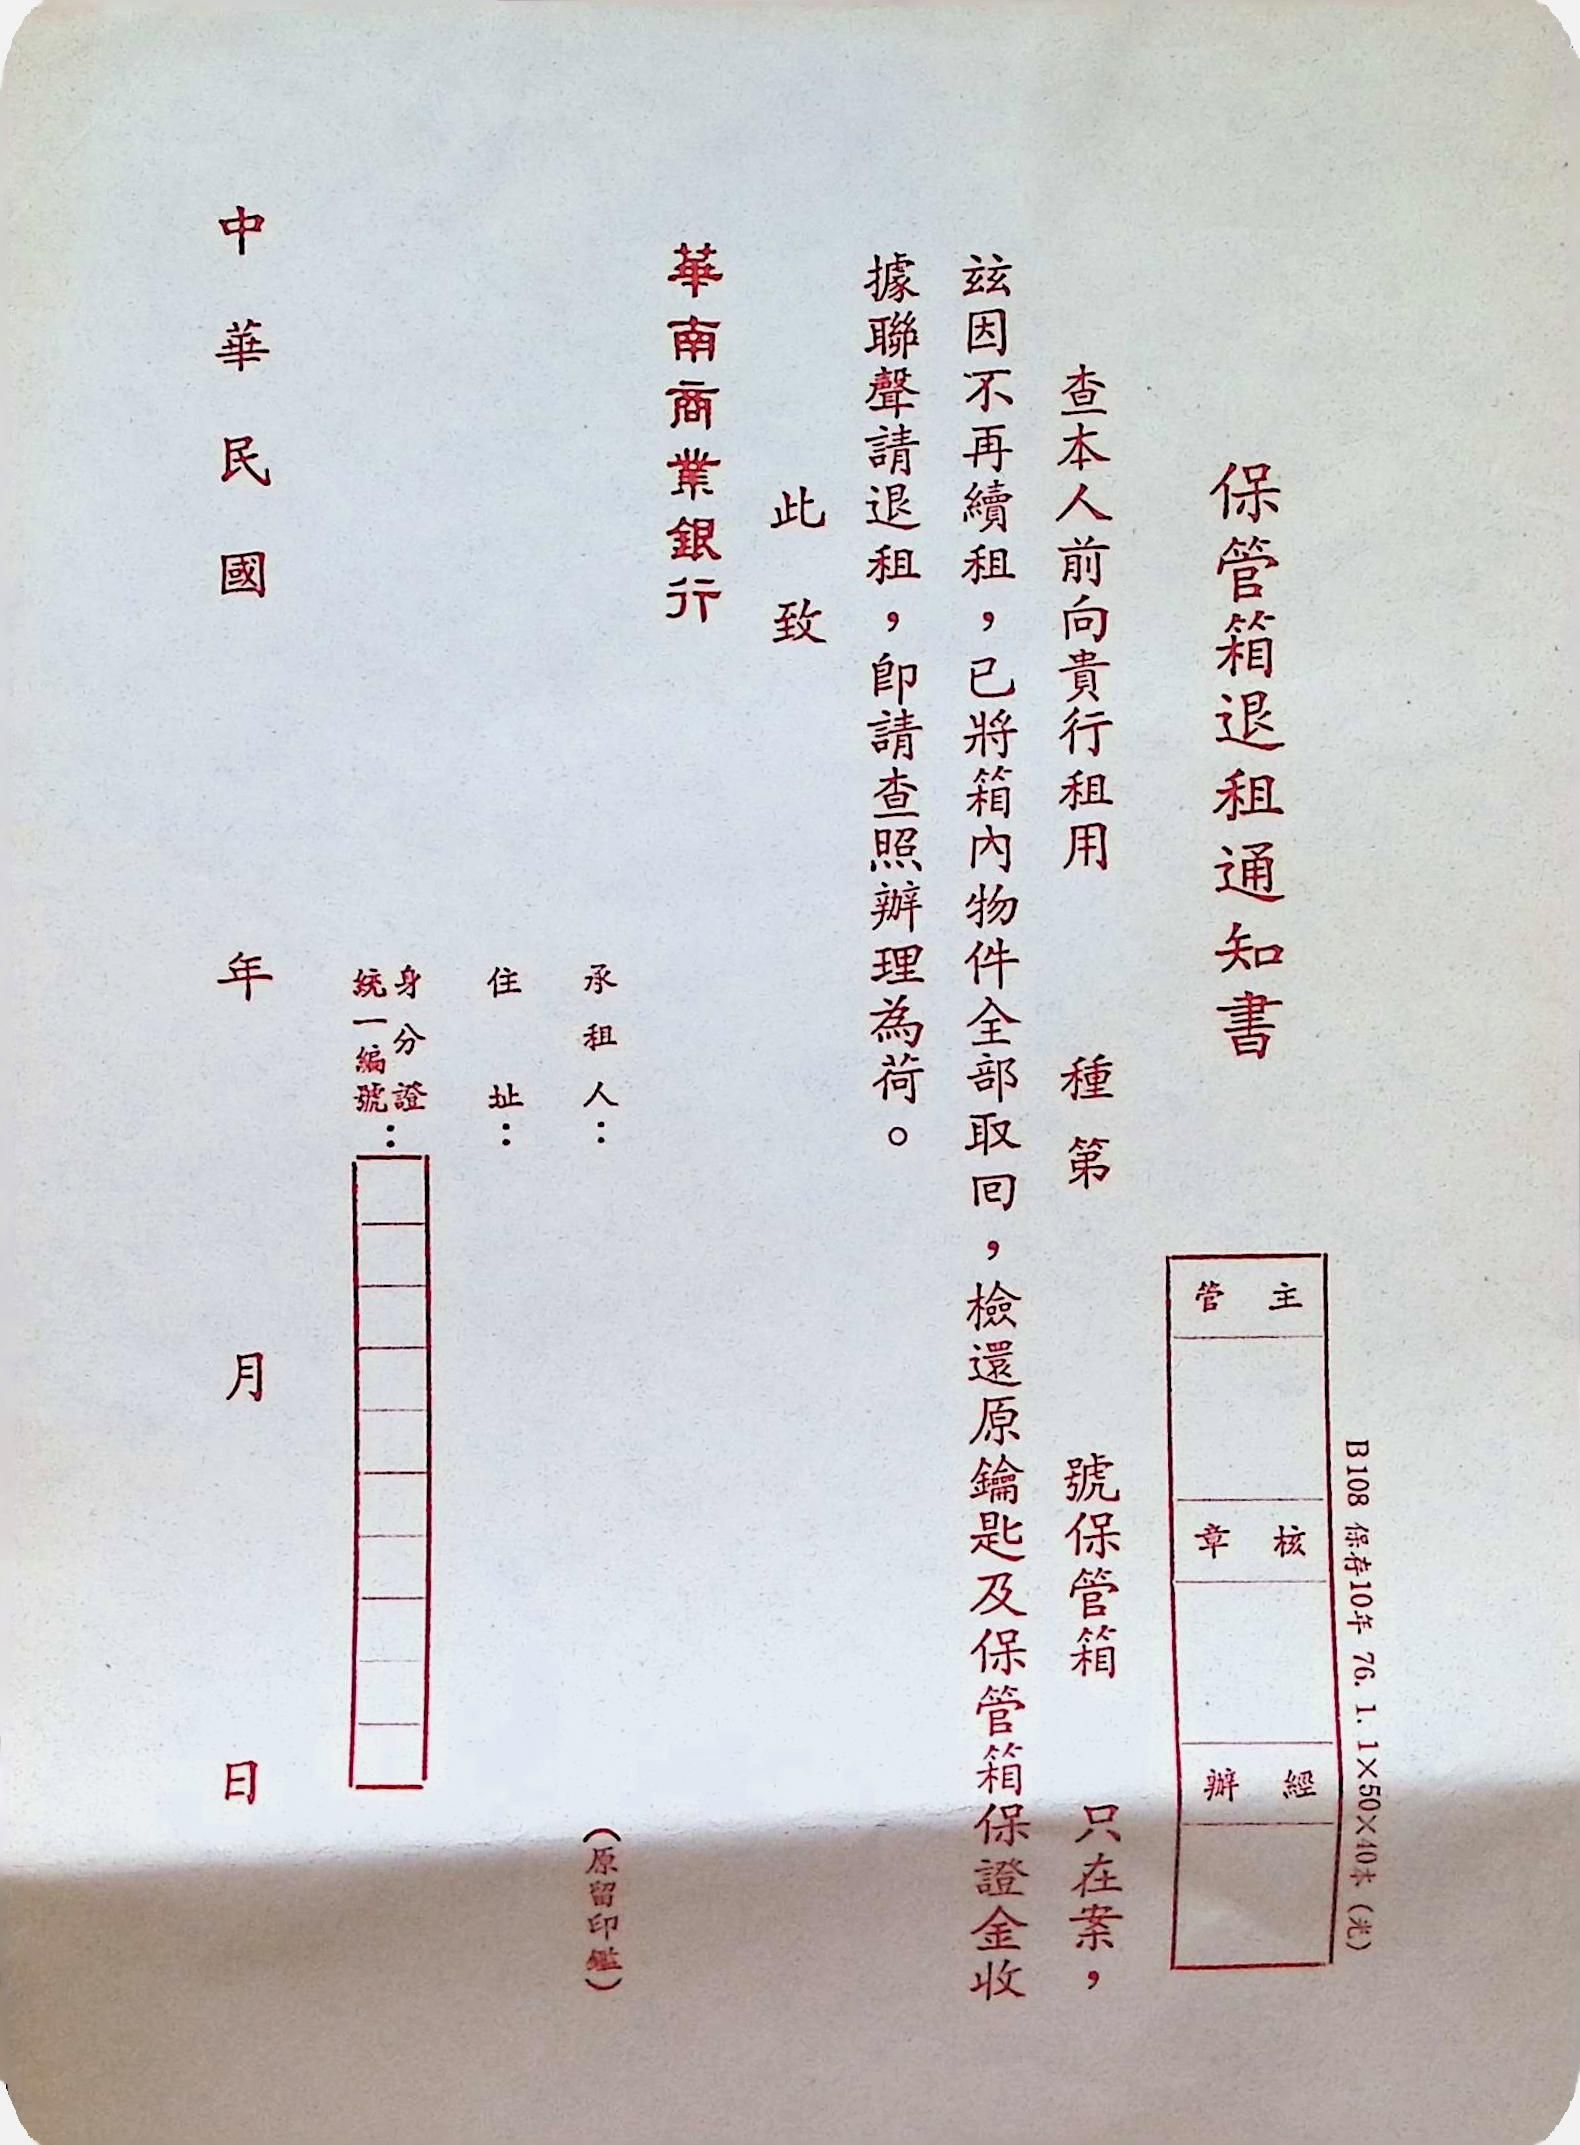 B108 保存10年 76. 1. 1×50×40本(光)
主管
核章
經辦
保管箱退租通知書
查本人前向貴行租用 種第 號保管箱 只在案,
玆因不再續租,已將箱內物件全部取囘,檢還原鑰匙及保管箱保證金收
據聯聲請退租,卽請查照辦理為荷。
此致
華南商業銀行
承租人: (原留印鑑)
住址:
身分證
統一編號:
中華民國 年 月 日